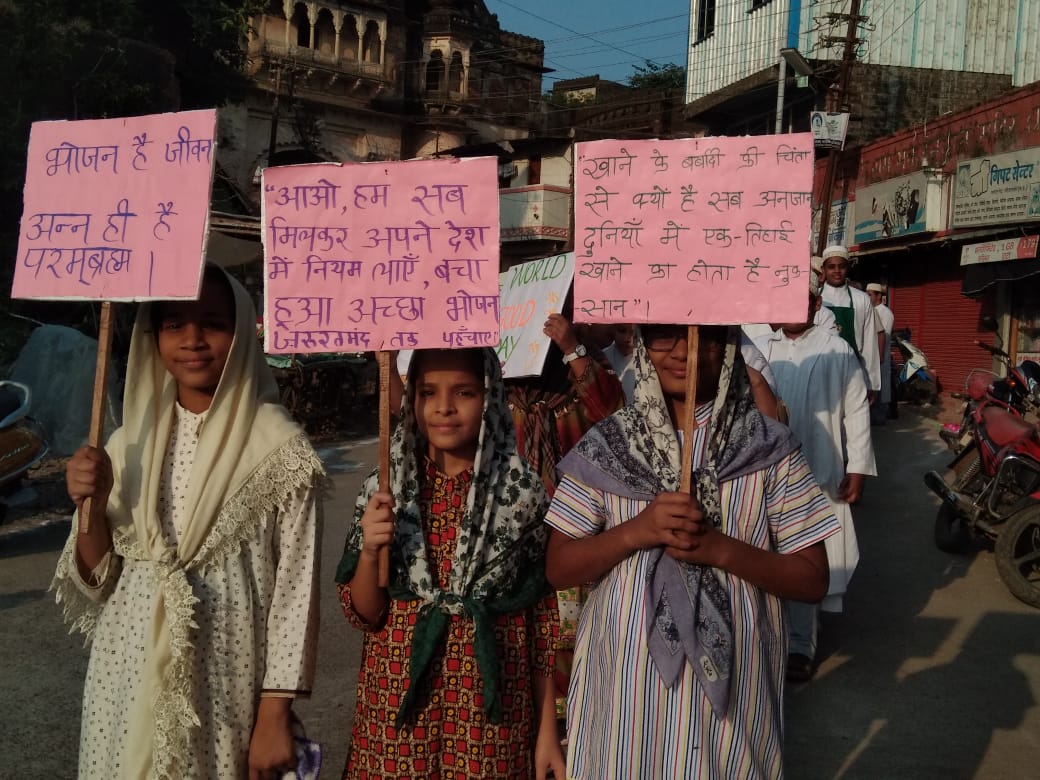 भोजन है जीवन
अन्न ही है
परमब्रह्म ।
"आओ, हम सब
मिलकर अपने देश
में नियम लाएँ, बचा
हुआ अच्छा भोजन
जरूरतमंद तक पहुँचाए।
WORLD
"खाने के बर्बादी की चिंता
से क्यों है सब अनजान
दुनियाँ में एक-तिहाई
खाने का होता है नुक-
सान"।
गिफ्ट सेन्टर